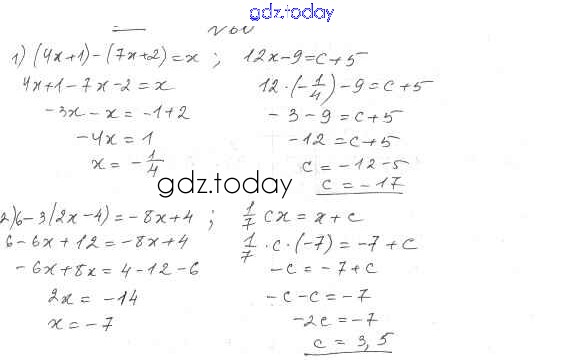 gdz.today
1) (4x+1)-(7x+2)=x ; 12x-9=c+5
4x+1-7x-2=x 12·(-1/4)-9=c+5
-3x-x=-1+2 -3-9=c+5
-4x=1 -12=c+5
x=-1/4 c=-12-5
c=-17
gdz.today
2) 6-3(2x-4)=-8x+4 ; 1/7 cx=x+c
6-6x+12=-8x+4 1/7·c·(-7)=-7+c
-6x+8x=4-12-6 -c=-7+c
2x=-14 -c-c=-7
x=-7 -2c=-7
c=3,5